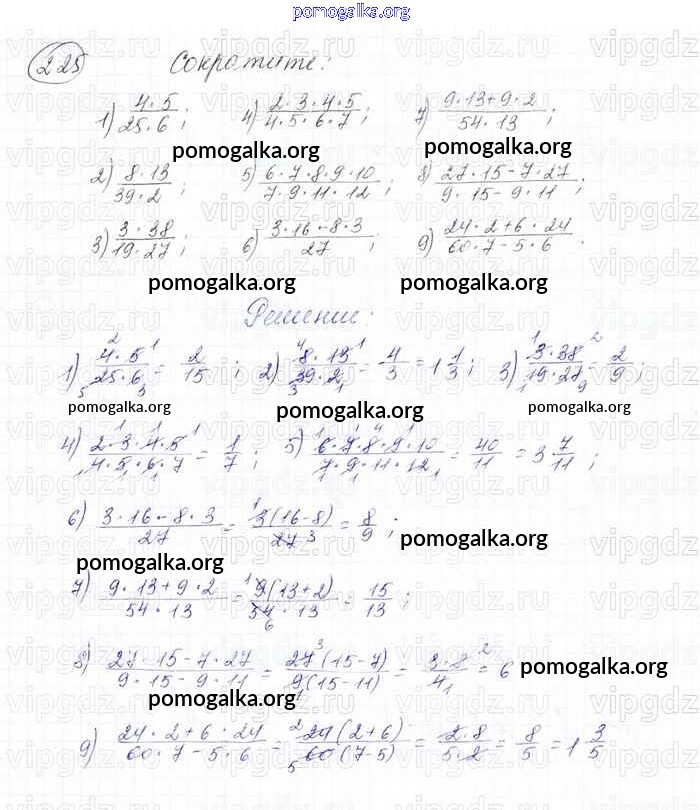 pomogalka.org
225 Сократите:
1) 4·5/25·6; 4) 2·3·4·5/4·5·6·7; 7) 9·13+9·2/54·13;
pomogalka.org pomogalka.org
2) 8·13/39·2; 5) 6·7·8·9·10/7·9·11·12; 8) 27·15-7·27/9·15-9·11;
3) 3·38/19·27; 6) 3·16-8·3/27; 9) 24·2+6·24/60·7-5·6.
pomogalka.org pomogalka.org
Решение:
1) 4·5/25·6 = 2/15; 2) 8·13/39·2 = 4/3 = 1 1/3; 3) 3·38/19·27 = 2/9;
pomogalka.org pomogalka.org pomogalka.org
4) 2·3·4·5/4·5·6·7 = 1/7; 5) 6·7·8·9·10/7·9·11·12 = 40/11 = 3 7/11;
6) 3·16-8·3/27 = 3(16-8)/27 = 8/9;
pomogalka.org pomogalka.org
7) 9·13+9·2/54·13 = 9(13+2)/54·13 = 15/13;
8) 27·15-7·27/9·15-9·11 = 27(15-7)/9(15-11) = 3·8/4 = 6
pomogalka.org
pomogalka.org
9) 24·2+6·24/60·7-5·6 = 24(2+6)/60(7-5) = 2·8/5·2 = 8/5 = 1 3/5